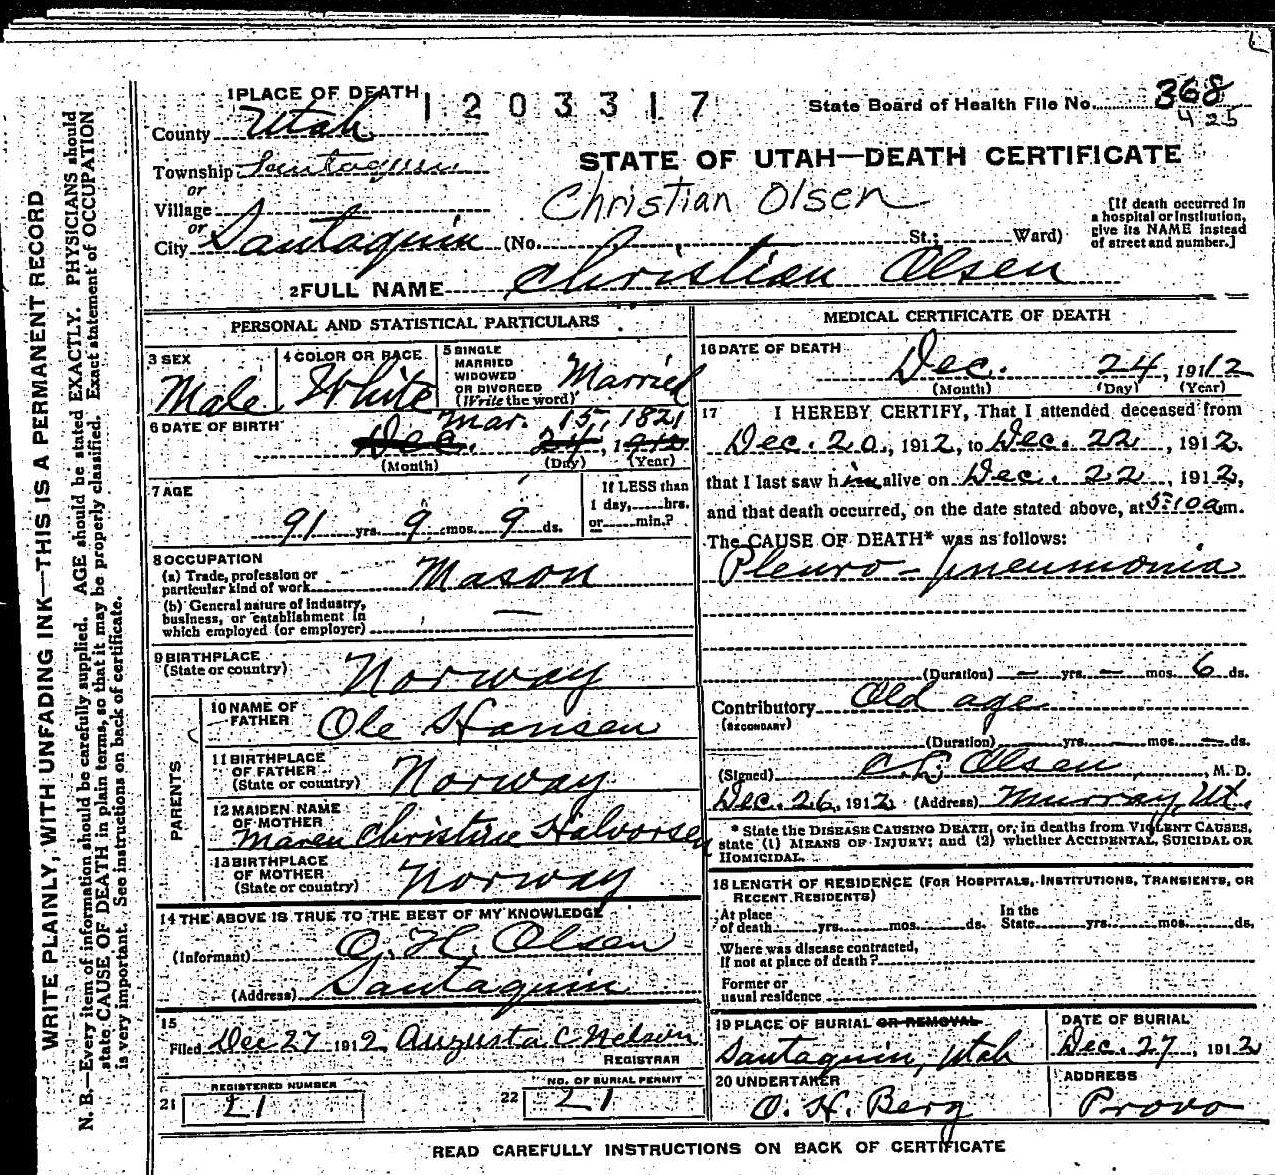 1 PLACE OF DEATH
1203317
State Board of Health File No. 368
4 25
County Utah
Township Santaquin
or
Village
or
City Santaquin (No. St.; Ward)
STATE OF UTAH—DEATH CERTIFICATE
Christian Olsen
[If death occurred in
a hospital or institution,
give its NAME instead
of street and number.]
2 FULL NAME Christian Olsen
PERSONAL AND STATISTICAL PARTICULARS
3 SEX
Male
4 COLOR OR RACE
White
5 SINGLE
MARRIED
WIDOWED
OR DIVORCED
(Write the word)
Married
6 DATE OF BIRTH
Mar. 15, 1821
Dec. 24, 1912
(Month) (Day) (Year)
7 AGE
91 yrs. 9 mos. 9 ds.
If LESS than
1 day, hrs.
or min.?
8 OCCUPATION
(a) Trade, profession or
particular kind of work Mason
(b) General nature of industry,
business, or establishment in
which employed (or employer) —
9 BIRTHPLACE
(State or country) Norway
PARENTS
10 NAME OF
FATHER Ole Hansen
11 BIRTHPLACE
OF FATHER
(State or country) Norway
12 MAIDEN NAME
OF MOTHER
Maren Christine Halvorsen
13 BIRTHPLACE
OF MOTHER
(State or country) Norway
14 THE ABOVE IS TRUE TO THE BEST OF MY KNOWLEDGE
(Informant) O. H. Olsen
(Address) Santaquin
15
Filed Dec 27 1912 Augusta C Nelson
REGISTRAR
REGISTERED NUMBER
21 21
NO. OF BURIAL PERMIT
22 21
MEDICAL CERTIFICATE OF DEATH
16 DATE OF DEATH
Dec. 24, 1912
(Month) (Day) (Year)
17 I HEREBY CERTIFY, That I attended deceased from
Dec. 20, 1912, to Dec. 22, 1912.
that I last saw him alive on Dec. 22, 1912,
and that death occurred, on the date stated above, at 5:10 a m.
The CAUSE OF DEATH* was as follows:
Pleuro-pneumonia
(Duration) — yrs. — mos. 6 ds.
Contributory Old age
(SECONDARY)
(Duration) — yrs. — mos. — ds.
(Signed) C. L. Olsen, M. D.
Dec. 26, 1912 (Address) Murray, Ut.
* State the DISEASE CAUSING DEATH, or, in deaths from VIOLENT CAUSES,
state (1) MEANS OF INJURY; and (2) whether ACCIDENTAL, SUICIDAL OR
HOMICIDAL.
18 LENGTH OF RESIDENCE (FOR HOSPITALS, INSTITUTIONS, TRANSIENTS, OR
RECENT RESIDENTS)
At place
of death yrs. mos. ds.
In the
State yrs. mos. ds.
Where was disease contracted,
If not at place of death?
Former or
usual residence
19 PLACE OF BURIAL OR REMOVAL
Santaquin, Utah
DATE OF BURIAL
Dec. 27, 1912
20 UNDERTAKER
O. H. Berg
ADDRESS
Provo
READ CAREFULLY INSTRUCTIONS ON BACK OF CERTIFICATE
WRITE PLAINLY, WITH UNFADING INK—THIS IS A PERMANENT RECORD
N. B.—Every item of information should be carefully supplied. AGE should be stated EXACTLY. PHYSICIANS should
state CAUSE OF DEATH in plain terms, so that it may be properly classified. Exact statement of OCCUPATION
is very important. See instructions on back of certificate.